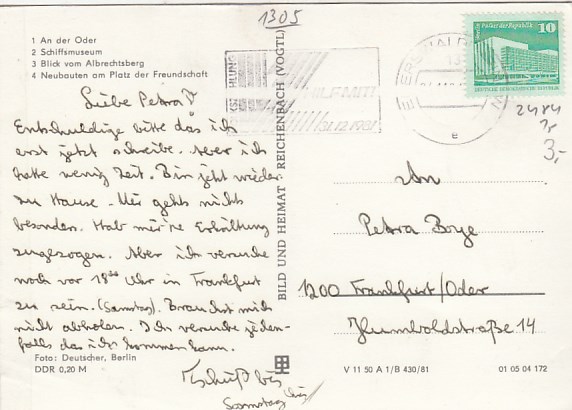 1305
1 An der Oder
2 Schiffsmuseum
3 Blick vom Albrechtsberg
4 Neubauten am Platz der Freundschaft
Liebe Petra!
Entschuldige bitte das ich
erst jetzt schreibe. Aber ich
hatte wenig Zeit. Bin jetzt wieder
zu Hause. Mir gehts nicht
besonders. Hab mir 'ne Erkältung
zugezogen. Aber ich versuche
noch vor 18⁰⁰ Uhr in Frankfurt
zu sein. (Samstag). Brauchst mich
nicht abholen. Ich versuche jeden-
falls das ich kommen kann.
Tschüß bis
Samstag
Foto: Deutscher, Berlin
DDR 0,20 M
BILD UND HEIMAT REICHENBACH (VOGTL)
ZÄHLUNG
HILF MIT!
31.12.1981
EBERSWALDE
e
Palast der Republik
10
DEUTSCHE DEMOKRATISCHE REPUBLIK
2484
3,-
An
Petra Boye
1200 Frankfurt/Oder
Humboldstraße 14
V 11 50 A 1/B 430/81
01 05 04 172